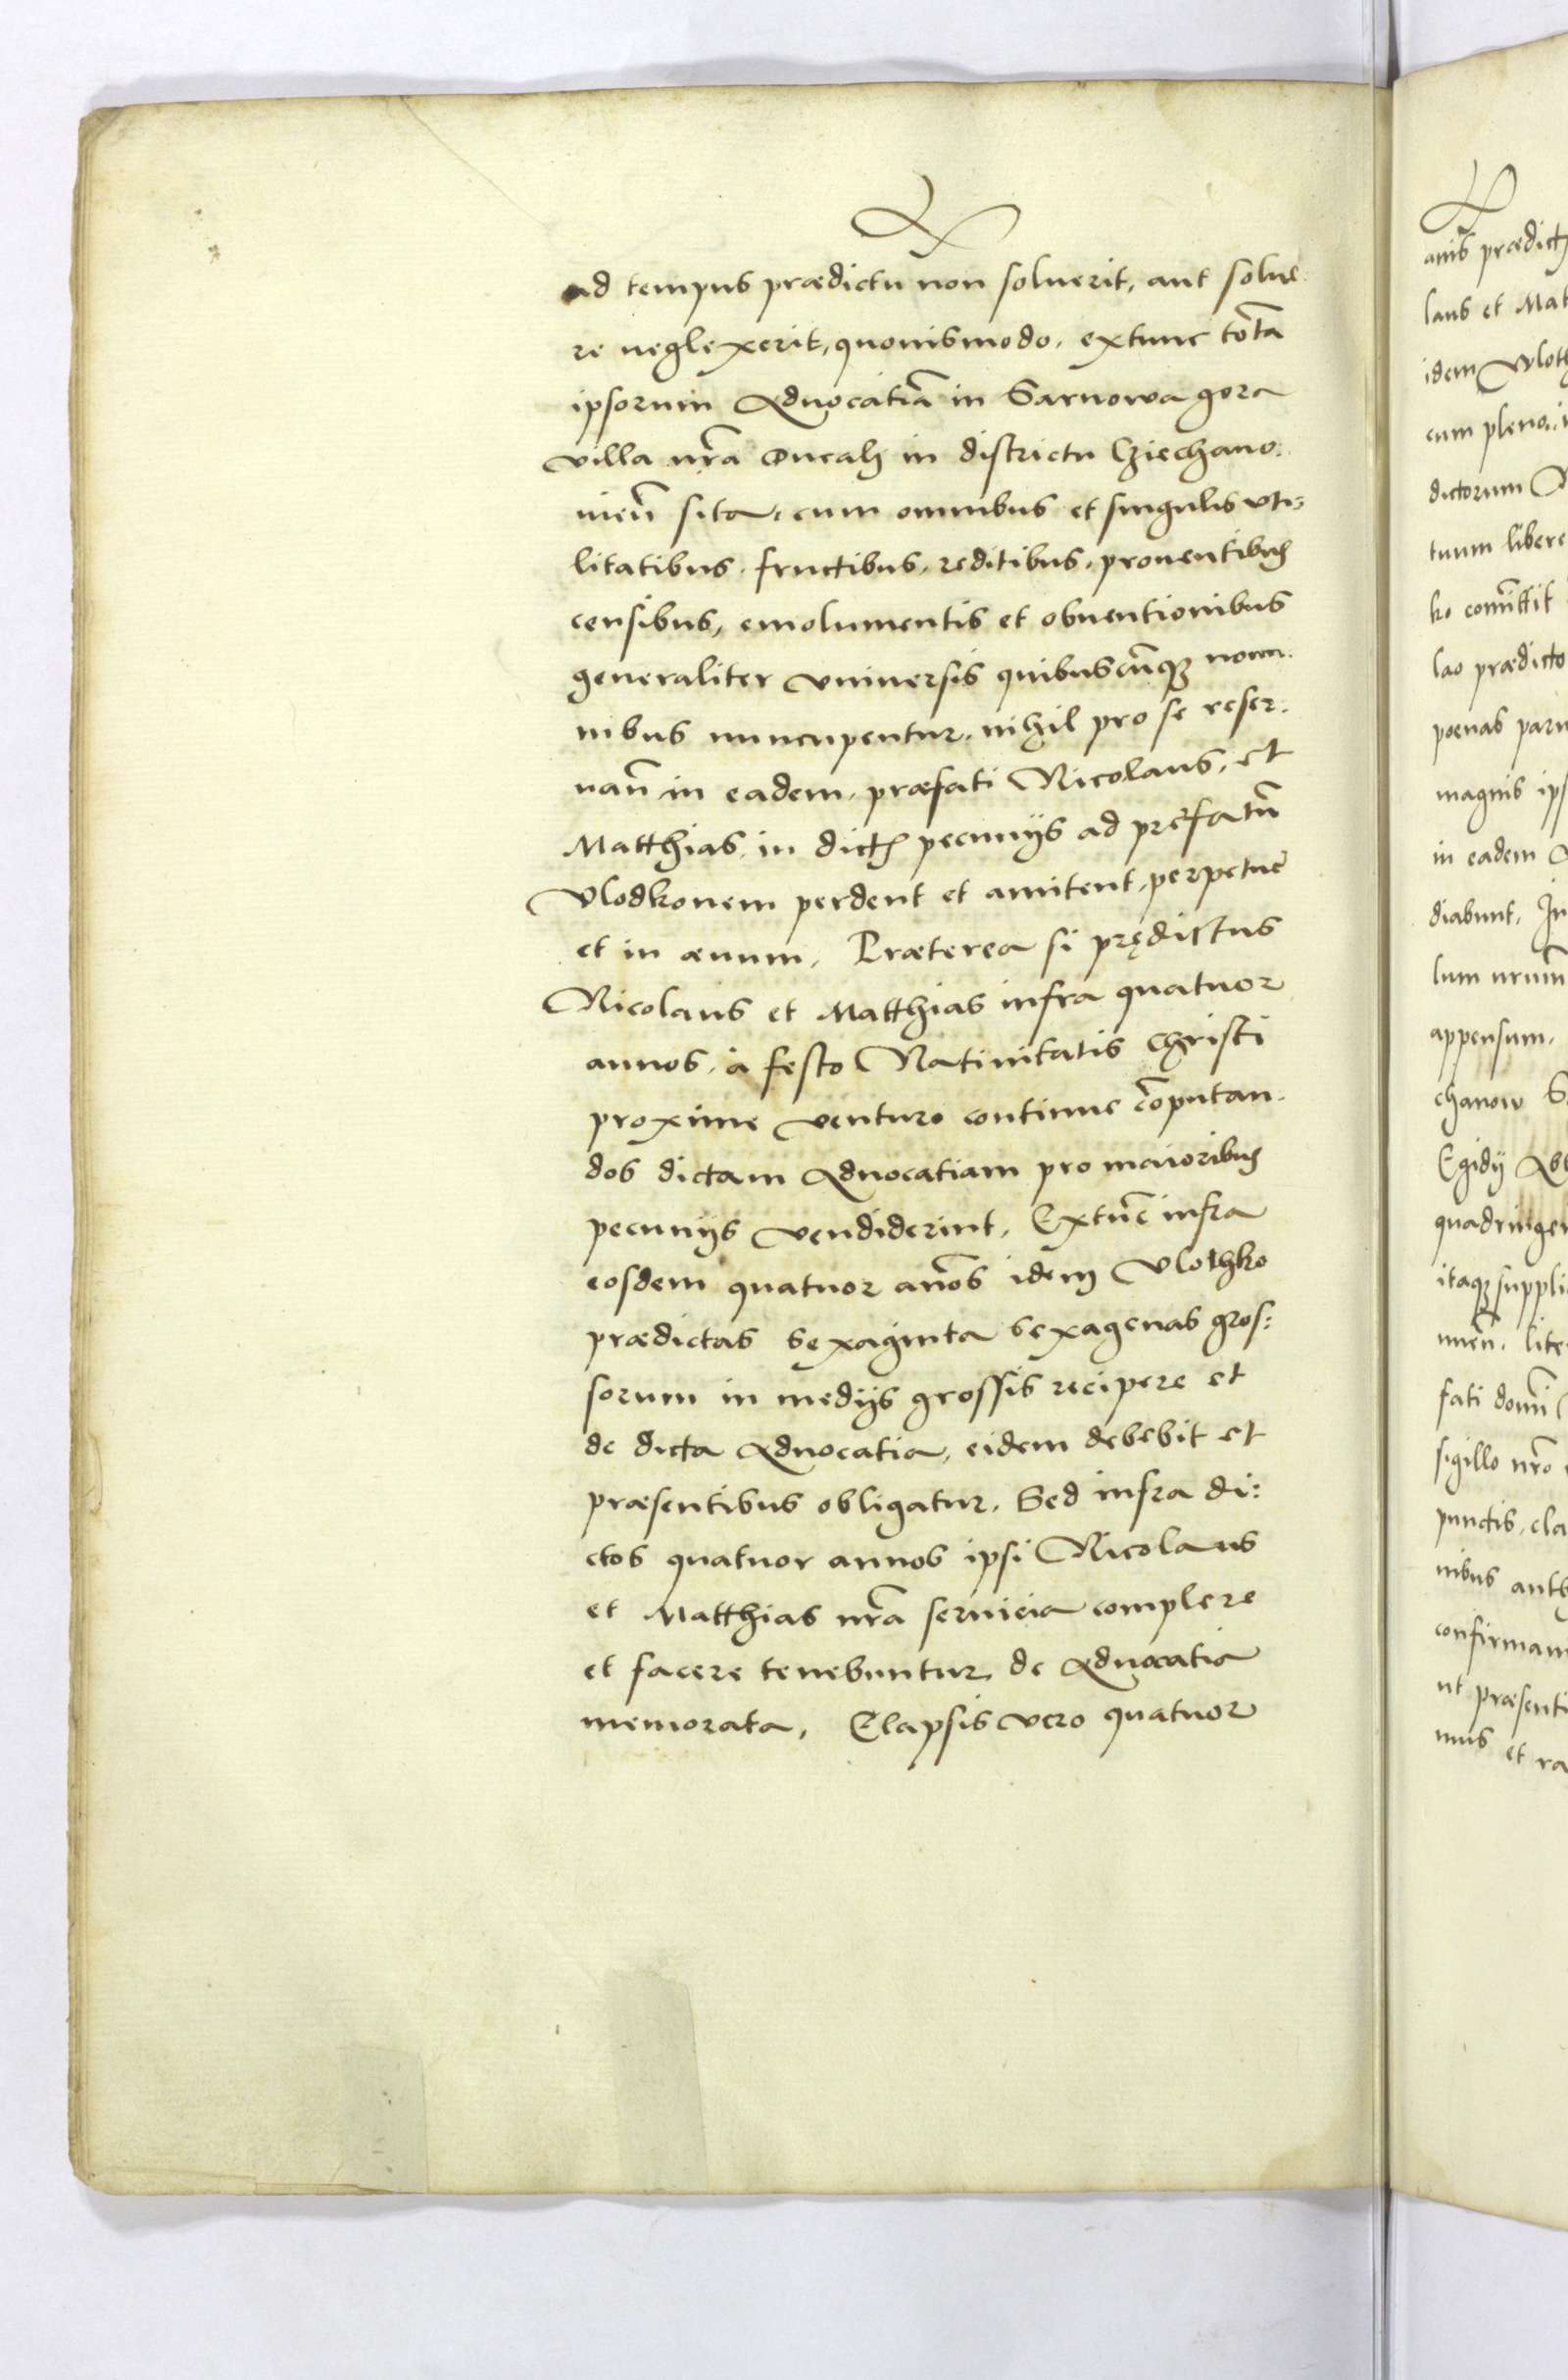 ad tempus prædictu non soluerit, aut solue
re neglexerit, quouismodo, extunc tōta
ipsorum Aduocatiā in Sarnowa gora
villa nr̄a Ducali in districtu Cziechano:
uieñ sita, cum omnibus et singulis vti=
litatibus, fructibus, reditibus, prouentibus
censibus, emolumentis et obuentionibus
generaliter vniuersis quibuscūq; nomi.
nibus nuncupentur, nihil pro se reser:
uañ in eadem, præfati Nicolaus, et
Matthias, in dict; pecunijs ad prefatū
Vlodkonem perdent et amitent, perpetue
et in æuum, Præterea si prędictus
Nicolaus et Matthias infra quatuor
annos, à festo Natiuitatis Christi
proxime venturo continue cōputan-
dos dictam Aduocatiam pro maioribus
pecunijs vendiderint, Extūc infra
eosdem quatuor an̄os idem Vlothko
prædictas sexaginta sexagenas gros:
sorum in medijs grossis recipere et
de dicta Aduocatia, eidem debebit et
præsentibus obligatur, Sed infra di:
ctos quatuor annos ipsi Nicolaus
et Matthias nr̄a seruicia complere
et facere tenebuntur de Aduocatia
memorata, Elapsis vero quatuor
anis prædict;
laus et Mat
idem Vloth
cum pleno
dictorum
tuum libere
ko comittit
lao prædicto
pœnas paru
magnis ips
in eadem
diabunt, In
lum nrum
appensum,
chanow S
Egidij Ab
quadringen
itaq; suppli
meñ, lite
fati domi
sigillo nr̄o
punctis, cla
nibus auth
confirmam
ut præsenti
mus et ra